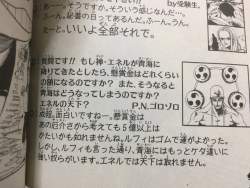 by受験生。
あーーー。そうですか。そういう感じなんだ…。
ふーん。秘書の日ってあるんだ。ふーん。うん。
とーーっ。いいよ全部それで。
質問です!! もし神・エネルが青海に
降りてきたとしたら、懸賞金はどれくらい
の額になるのですか? また、そうなると
青海はどうなってしまうのですか?
エネルの天下? P.N.ゴロゾロ
成程、面白いですねー。懸賞金は
あの厄介さから考えても5億以上は
かたいかもしれませんね。ルフィはゴムで運がよかった。
しかし、ルフィも言った通り、青海にはもっとケタ違いに
強い奴らがいます。エネルでは天下は取れません。